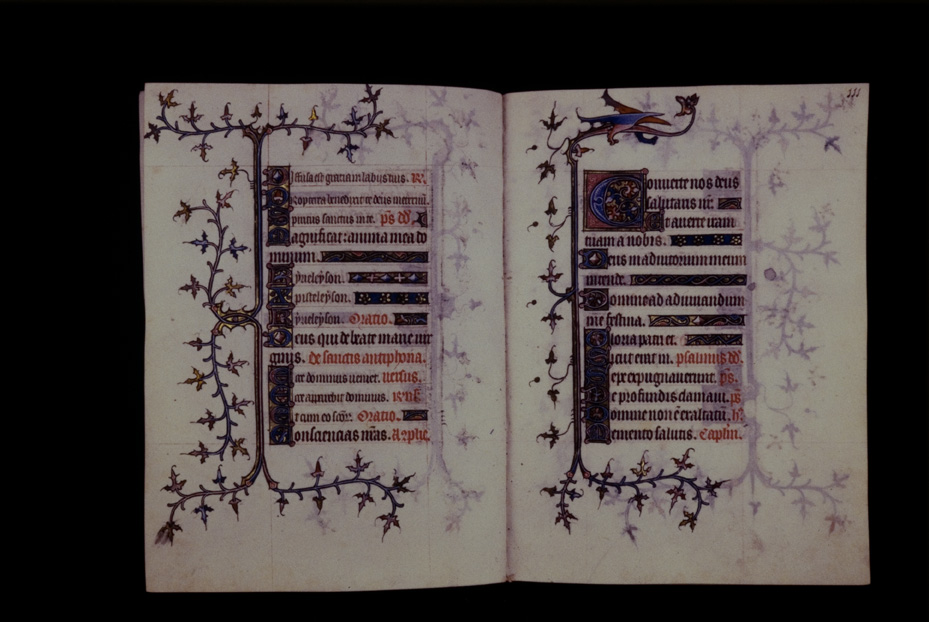 iffusa est gratia in labiis tuis. R'.
Propterea benedixit te deus in eternū.
Spiritus sanctus in te. ps dd'.
Magnificat: anima mea do
minum.
Kyrieleyson.
Christeleyson.
Kyrieleyson. Oratio.
Deus qui de beate marie vir
ginis. De sanctis antiphona.
Ecce dominus veniet. versus.
Ecce apparebit dominus.
Et cum eo Oratio.
Consciencias nr̄as.
Conuerte nos deus
salutaris nr̄.
Et auerte iram
tuam a nobis.
Deus in adiutorium meum
intende.
Domine ad adiuuandum
me festina.
Gloria patri et.
Sicut erat in. psalmus dd'.
Sepe expugnauerunt. ps.
De profundis clamaui. ps
Domine non ē exaltatū. h'.
Memento salutis. Capitl'm.